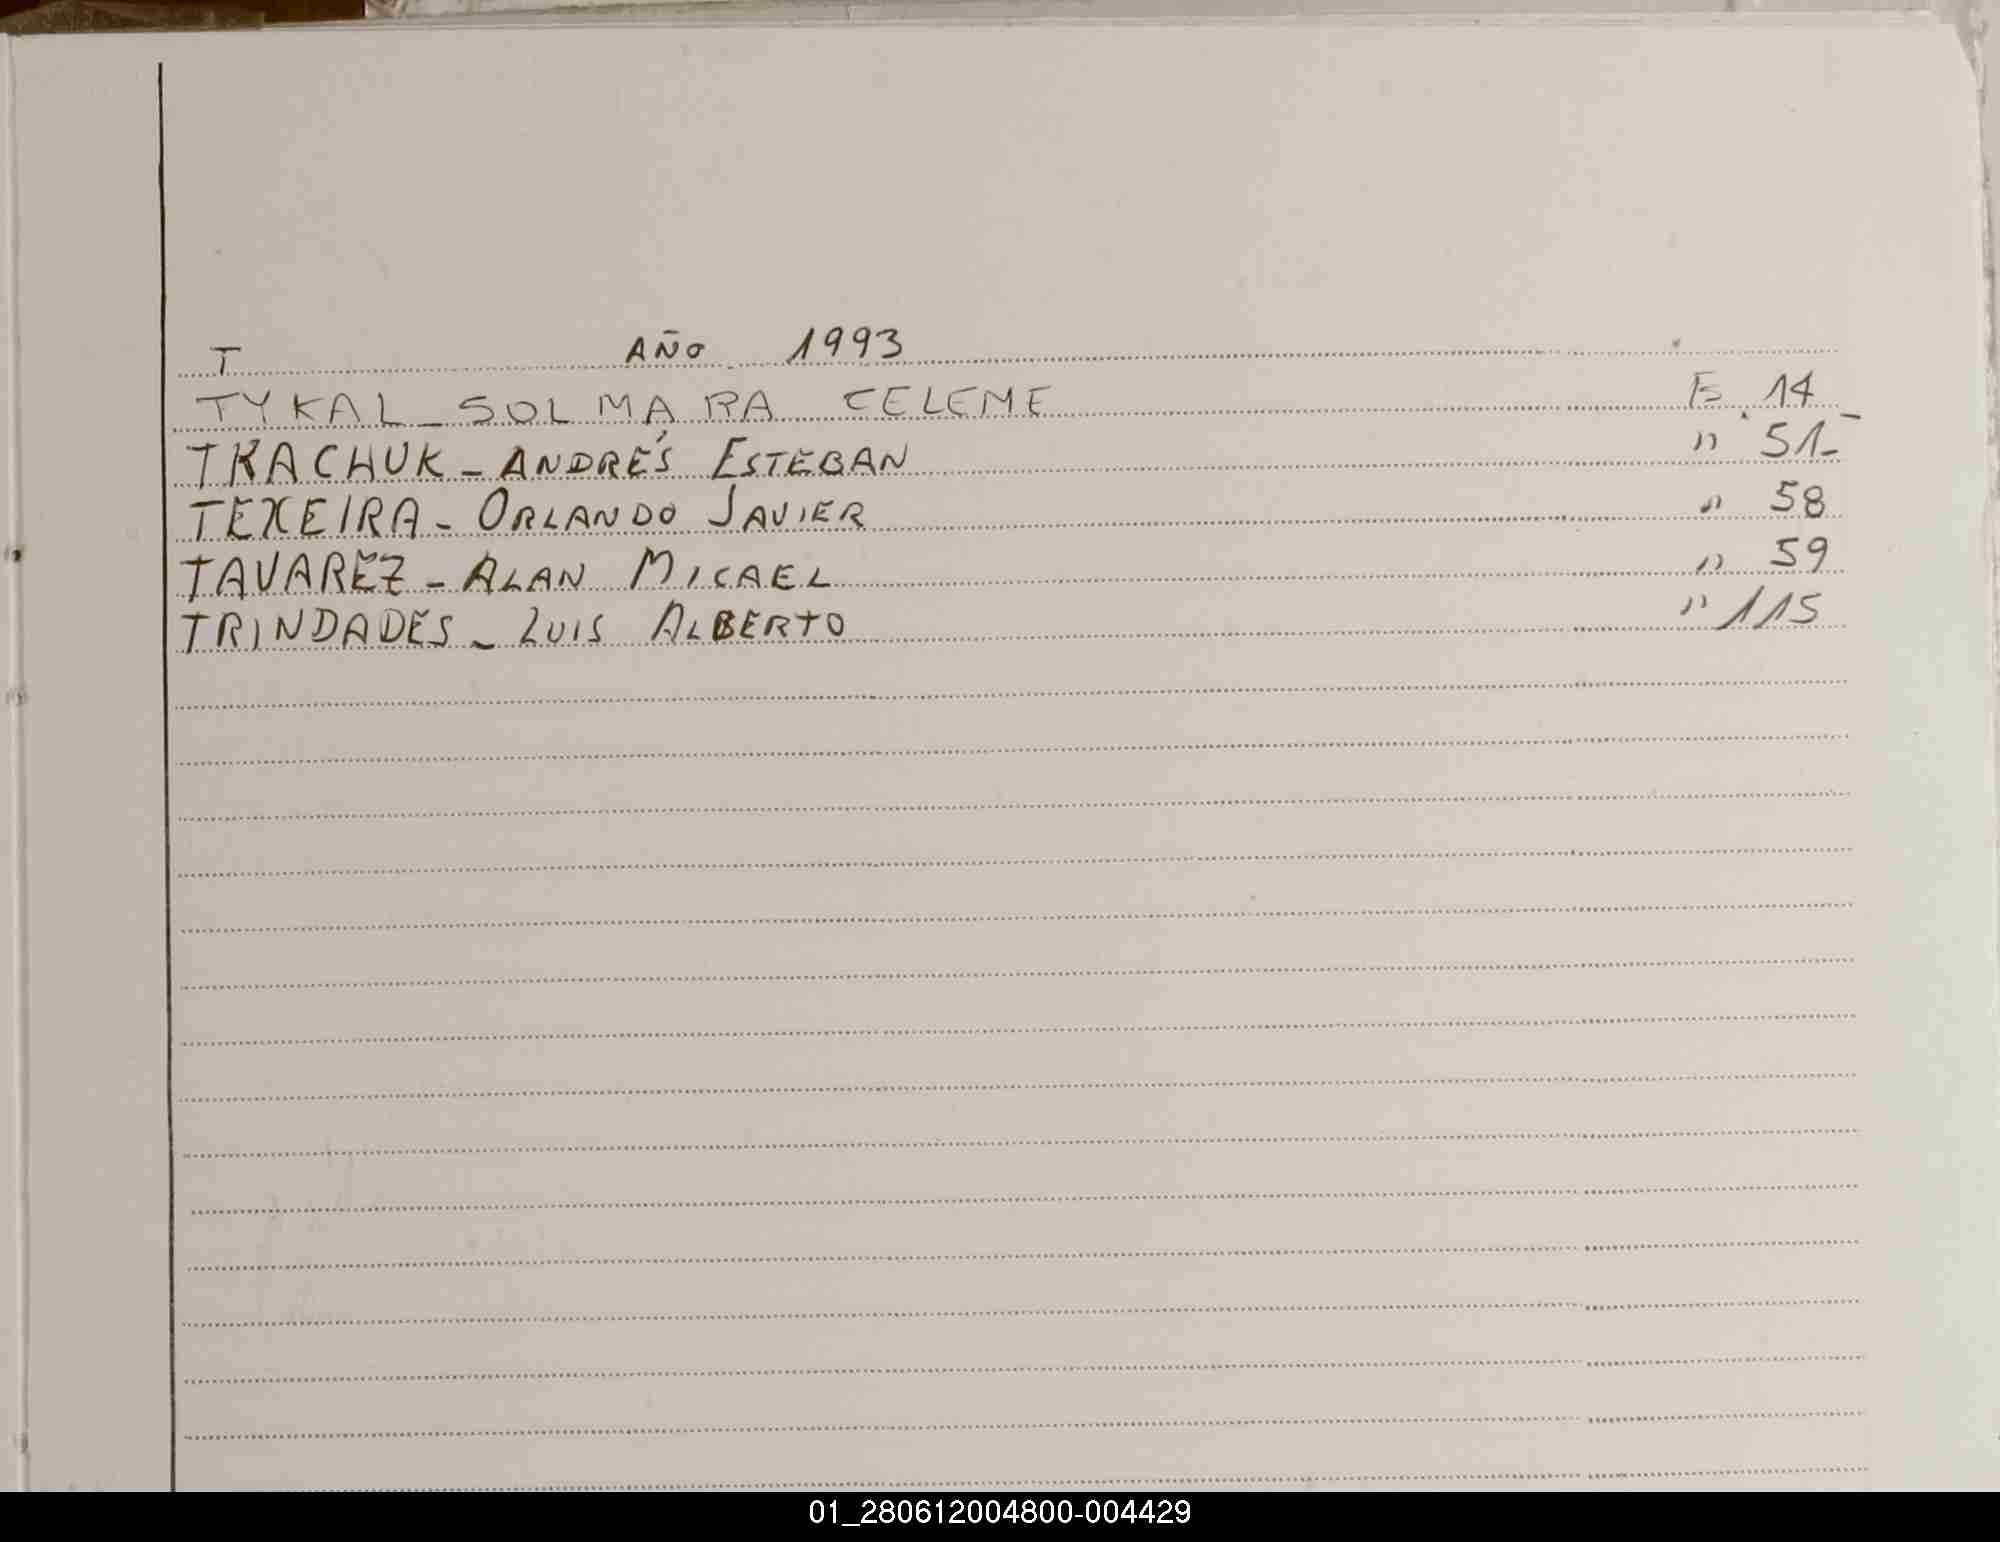 T AÑO 1993
TYKAL - SOL MARA CELEME Fs. 14
TKACHUK - ANDRÉS ESTEBAN " 51-
TEXEIRA - ORLANDO JAVIER " 58
TAVAREZ - ALAN MICAEL " 59
TRINDADES - LUIS ALBERTO " 115
01_280612004800-004429